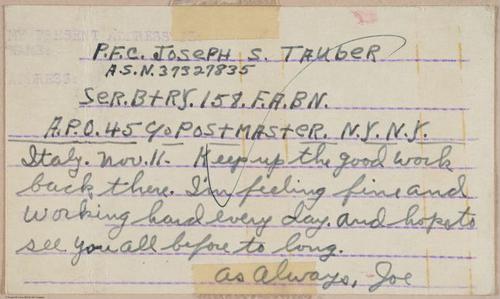 MY PRESENT ADDRESS IS:
NAME:
P.F.C. JOSEPH S. TAUBER
ADDRESS:
A.S.N. 37327835
SER. B+RY. 158. F.A. BN.
A.P.O. 45 c/o POSTMASTER. N.Y. N.Y.
Italy. Nov. 11. Keep up the good work
back there. I'm feeling fine and
working hard every day. and hope to
see you all before to long.
as always, Joe